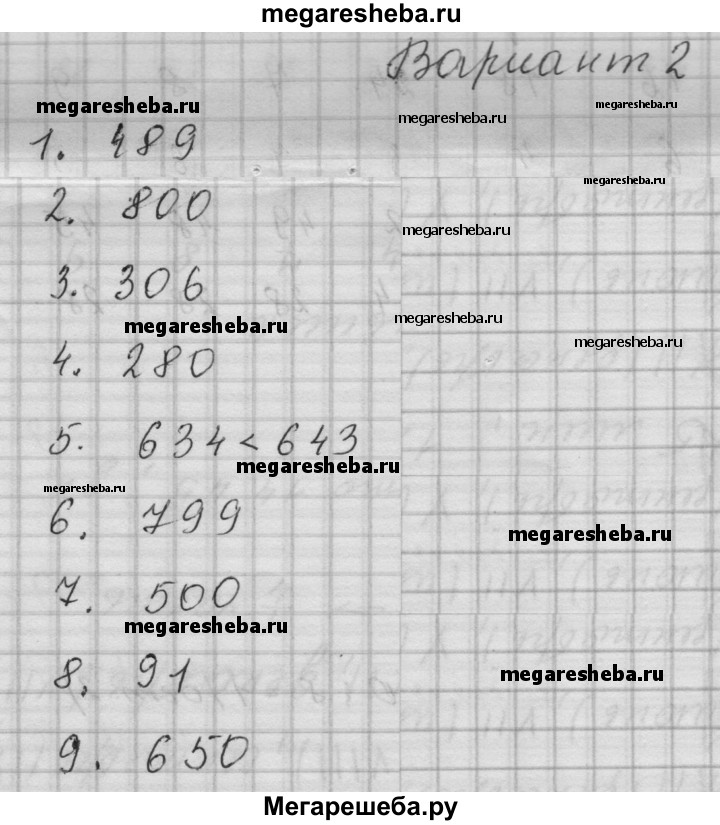 megaresheba.ru
Вариант 2
megaresheba.ru megaresheba.ru megaresheba.ru
1. 489
megaresheba.ru
2. 800
megaresheba.ru
3. 306
megaresheba.ru megaresheba.ru
megaresheba.ru
4. 280
5. 634 < 643
megaresheba.ru
megaresheba.ru
6. 799
megaresheba.ru
7. 500
megaresheba.ru
8. 91
megaresheba.ru
9. 650
Мегарешеба.ру